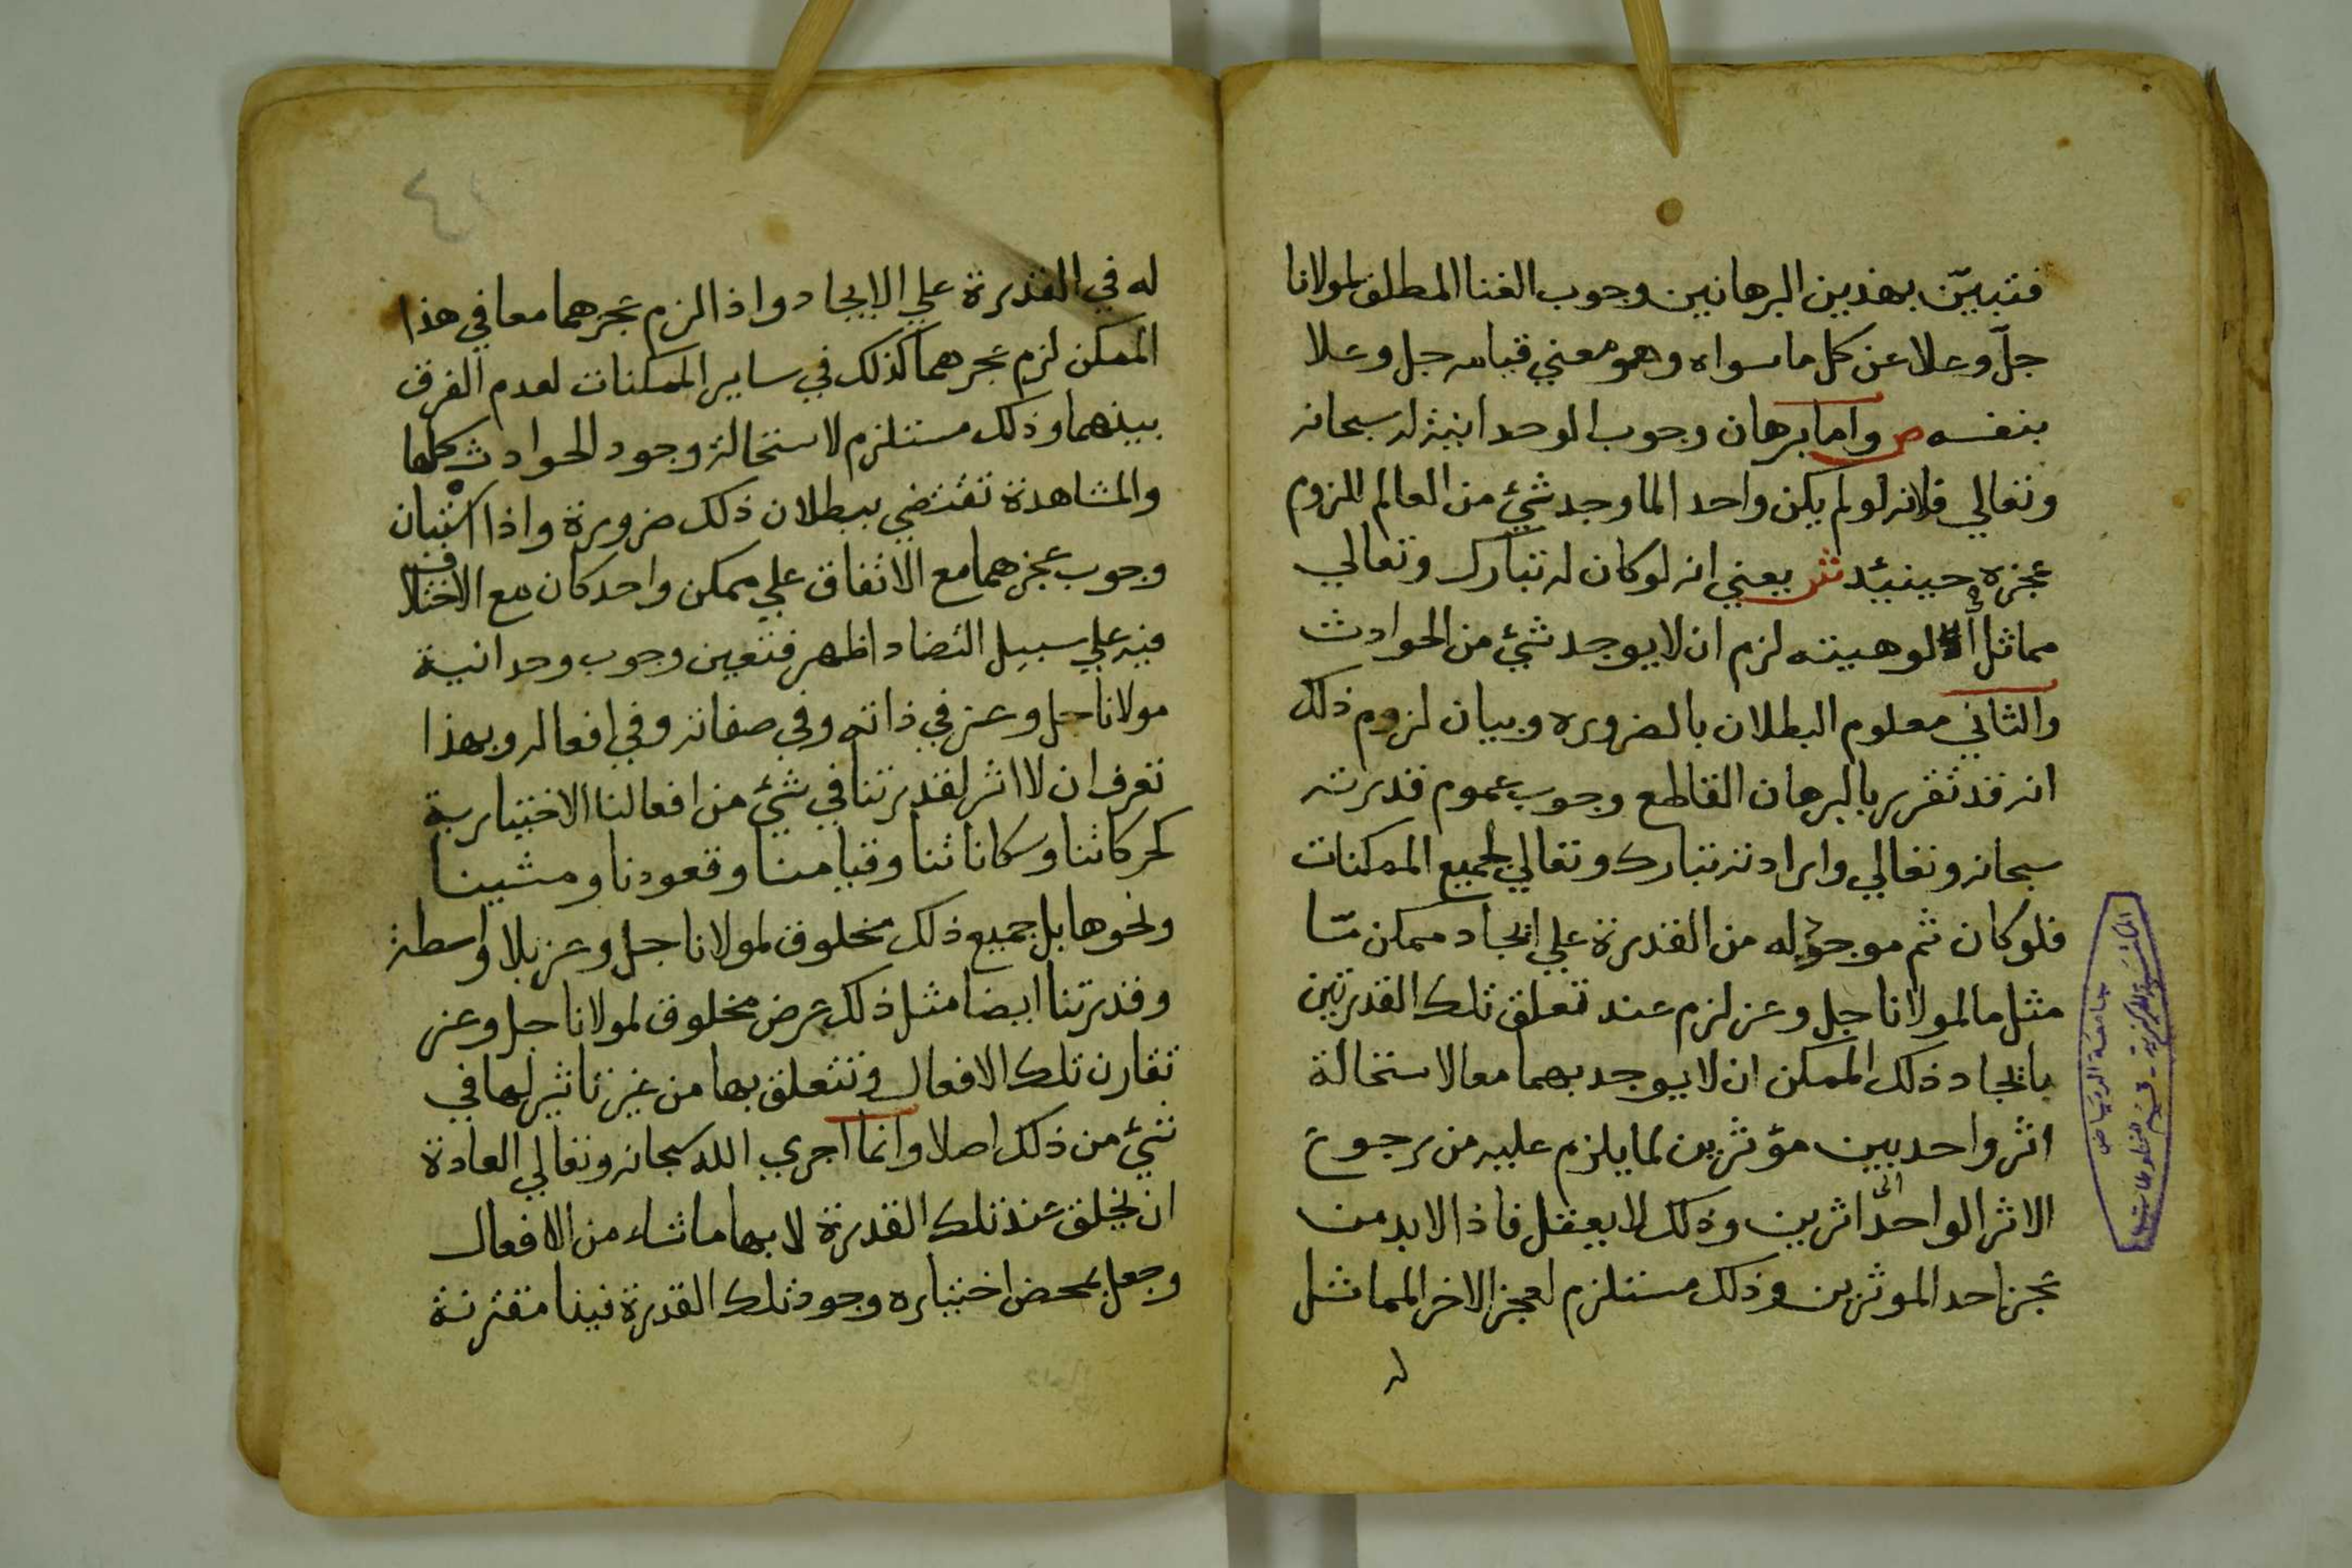 فتبيّن بهذين البرهانين وجوب الغنا المطلق لمولانا
جلّ وعلا عن كل ما سواه وهو معني قيامه جل وعلا
بنفسه ص واما برهان وجوب الوحدانية له سبحانه
وتعالي فلانه لو لم يكن واحدا لما وجد شيئ من العالم للزوم
عجزه حينيئد ش يعني انه لو كان له تبارك وتعالي
مماثل في الوهيته لزم ان لا يوجد شيئ من الحوادث
والثاني معلوم البطلان بالضروره وبيان لزوم ذلك
انه قد تقرر بالبرهان القاطع وجوب عموم قدرته
سبحانه وتعالي وارادته تبارك وتعالي لجميع الممكنات
فلو كان ثم موجود له من القدرة علي ايجاد ممكن مّا
مثل ما لمولانا جل وعز لزم عند تعلق تلك القدرتين
بايجاد ذلك الممكن ان لا يوجد بهما معا لاستحالة
اثر واحد بين مؤثرين لما يلزم عليه من رجوع
الاثر الواحد الى اثرين وذلك لا يعقل فاذا لابد من
عجز احد الموثرين وذلك مستلزم لعجز الاخر المماثل
له
المكتبة المركزية - قسم المخطوطات
جامعة الرياض
١٤
له في القدرة علي الايجاد واذا لزم عجزهما معا في هذا
الممكن لزم عجزهما كذلك في ساير الممكنات لعدم الفرق
بينهما وذلك مستلزم لاستحالة وجود الحوادث كلها
والمشاهدة تقتضي ببطلان ذلك ضرورة واذا استبان
وجوب عجزهما مع الاتفاق علي ممكن واحد كان مع الاختلاف
فيه علي سبيل التضاد اظهر فتعين وجوب وحدانية
مولانا جل وعز في ذاته وفي صفاته وفي افعاله وبهذا
تعرف ان لا اثر لقدرتنا في شيئ من افعالنا الاختيارية
كحركاتنا وسكاناتنا وقيامنا وقعودنا ومشينا
ونحوها بل جميع ذلك مخلوق لمولانا جل وعز بلا واسطة
وقدرتنا ايضا مثل ذلك عرض مخلوق لمولانا جل وعز
تقارن تلك الافعال وتتعلق بها من غير تاثير لها في
شيئ من ذلك اصلا وانما اجري الله سبحانه وتعالي العادة
ان يخلق عند تلك القدرة لا بها ما شاء من الافعال
وجعل بمحض اختياره وجود تلك القدرة فينا مقترنة